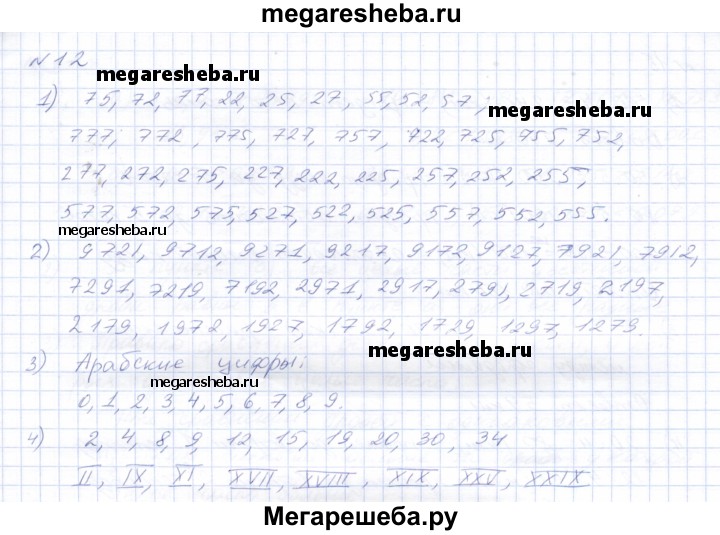 megaresheba.ru
№12
megaresheba.ru
1) 75, 72, 77, 22, 25, 27, 55, 52, 57,
megaresheba.ru
777, 772, 775, 727, 757, 722, 725, 755, 752,
277, 272, 275, 227, 222, 225, 257, 252, 255,
577, 572, 575, 527, 522, 525, 557, 552, 555.
megaresheba.ru
2) 9721, 9712, 9271, 9217, 9172, 9127, 7921, 7912,
7291, 7219, 7192, 2971, 2917, 2791, 2719, 2197,
2179, 1972, 1927, 1792, 1729, 1297, 1279.
megaresheba.ru
3) Арабские цифры:
megaresheba.ru
0, 1, 2, 3, 4, 5, 6, 7, 8, 9.
4) 2, 4, 8, 9, 12, 15, 19, 20, 30, 34
II, IX, XI, XVII, XVIII, XIX, XXV, XXIX
Мегарешеба.ру